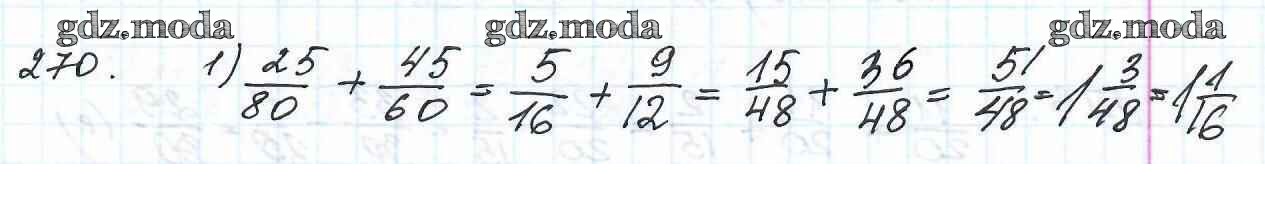 gdz.moda gdz.moda gdz.moda
270. 1) 25/80 + 45/60 = 5/16 + 9/12 = 15/48 + 36/48 = 51/48 = 1 3/48 = 1 1/16